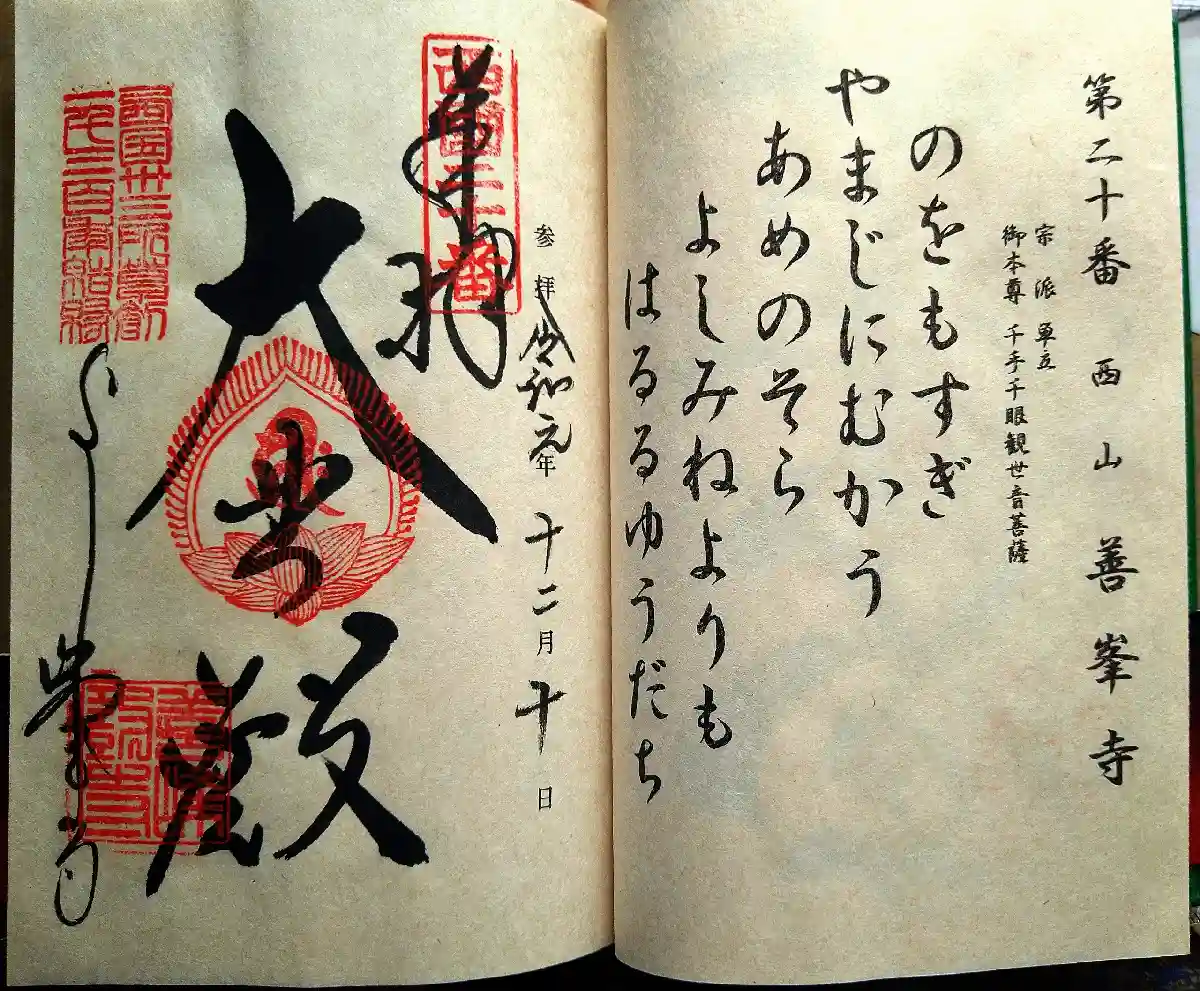 第二十番 西山 善峯寺
宗派 単立
御本尊 千手千眼観世音菩薩
のをもすぎ
やまじにむかう
あめのそら
よしみねよりも
はるるゆうだち
参拝 令和元年 十二月 十日
奉拝
西国二十番
大悲殿
西国三十三所草創
一千三百年結縁